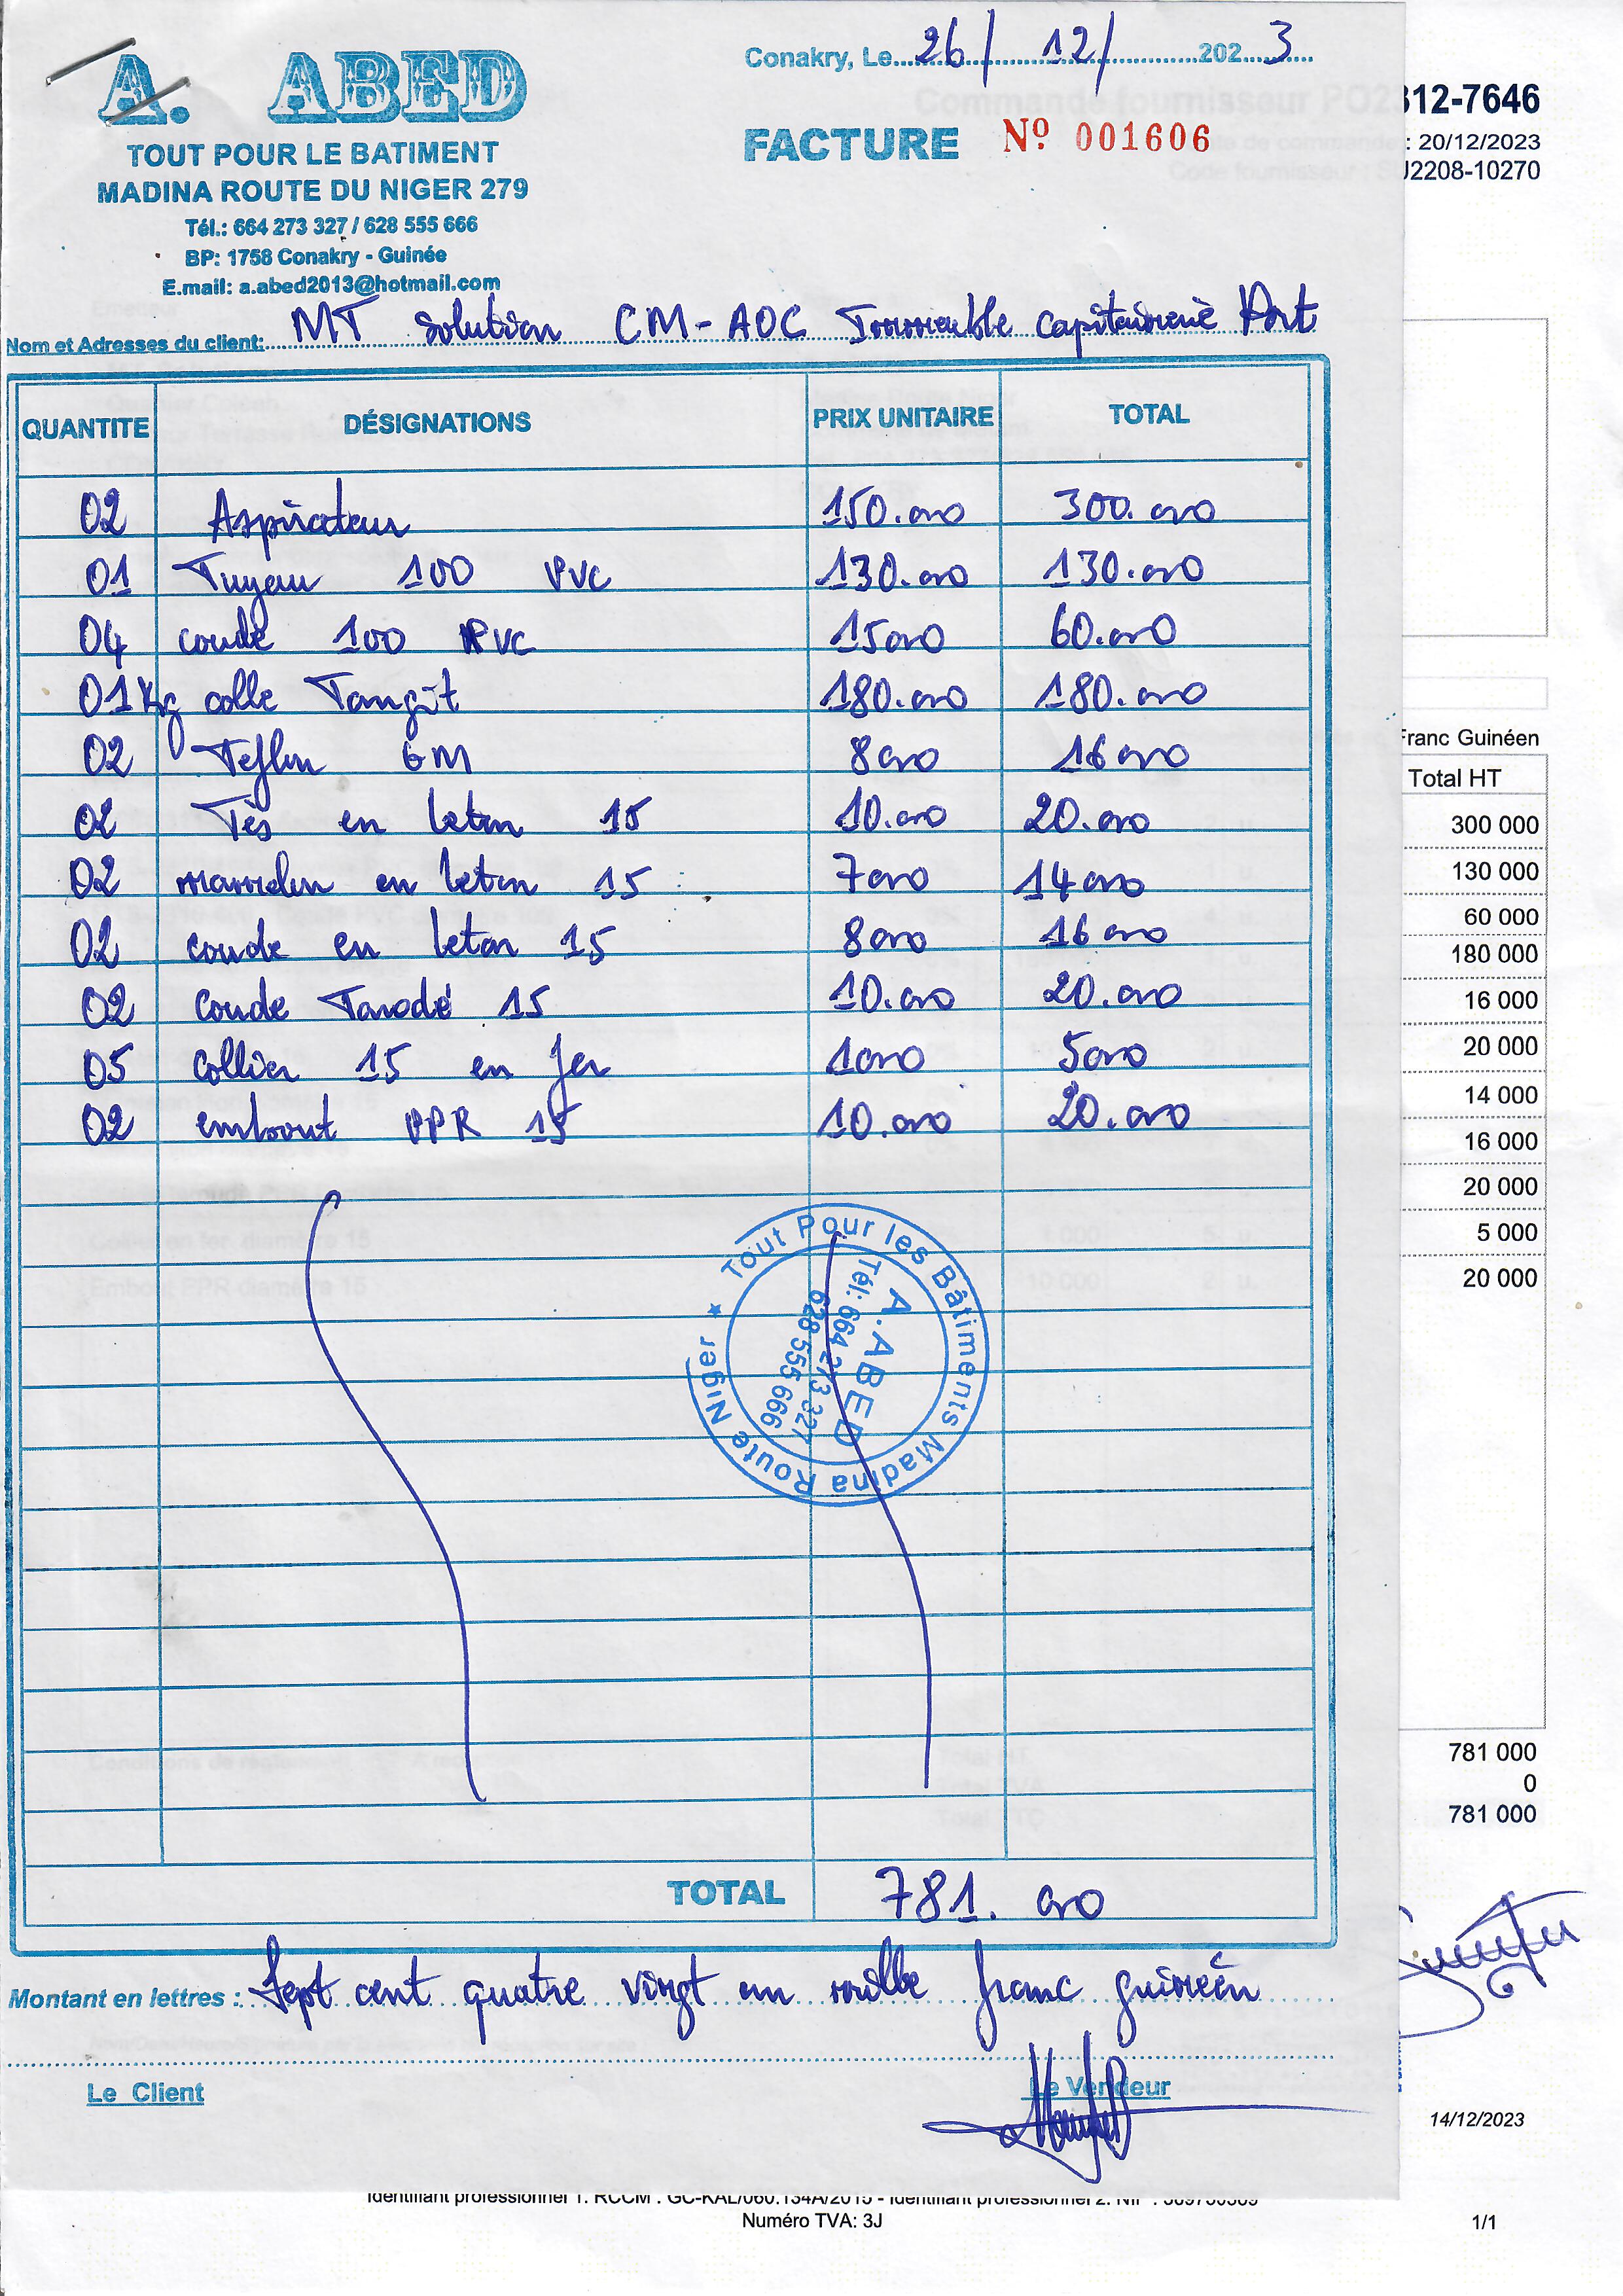 A. ABED
TOUT POUR LE BATIMENT
MADINA ROUTE DU NIGER 279
Tél.: 664 273 327 / 628 555 666
BP: 1758 Conakry - Guinée
E.mail: a.abed2013@hotmail.com
Conakry, Le 26/12/2023
FACTURE Nº 001606
Commande fournisseur PO2312-7646
: 20/12/2023
Code fournisseur : SU2208-10270
Nom et Adresses du client: MT Solution CM-AOC Immeuble Capitainerie Port
QUANTITE DÉSIGNATIONS PRIX UNITAIRE TOTAL
02 Aspirateur 150.000 300.000
01 Tuyau 100 PVC 130.000 130.000
04 coude 100 PVC 15000 60.000
01Kg colle Tangit 180.000 180.000
02 Teflon GM 8000 16000
02 Tés en leton 15 10.000 20.000
02 mamelon en leton 15 7000 14000
02 coude en leton 15 8000 16000
02 Coude Tarodé 15 10.000 20.000
05 Collier 15 en fer 1000 5000
02 embout PPR 15 10.000 20.000
Franc Guinéen
Total HT
300 000
130 000
60 000
180 000
16 000
20 000
14 000
16 000
20 000
5 000
20 000
Embout PPR diamètre 15 10 000 2 u.
Tout Pour les Bâtiments Madina Route Niger ★
A. ABED
Tél: 664 273 327
628 555 666
781 000
0
781 000
TOTAL 781.000
Montant en lettres : Sept cent quatre vingt un mille franc guinéen
Le Client
Le Vendeur
14/12/2023
Identifiant professionnel 1: RCCM : GC-KAL/060.134A/2015 - Identifiant professionnel 2: NIF :
Numéro TVA: 3J
1/1